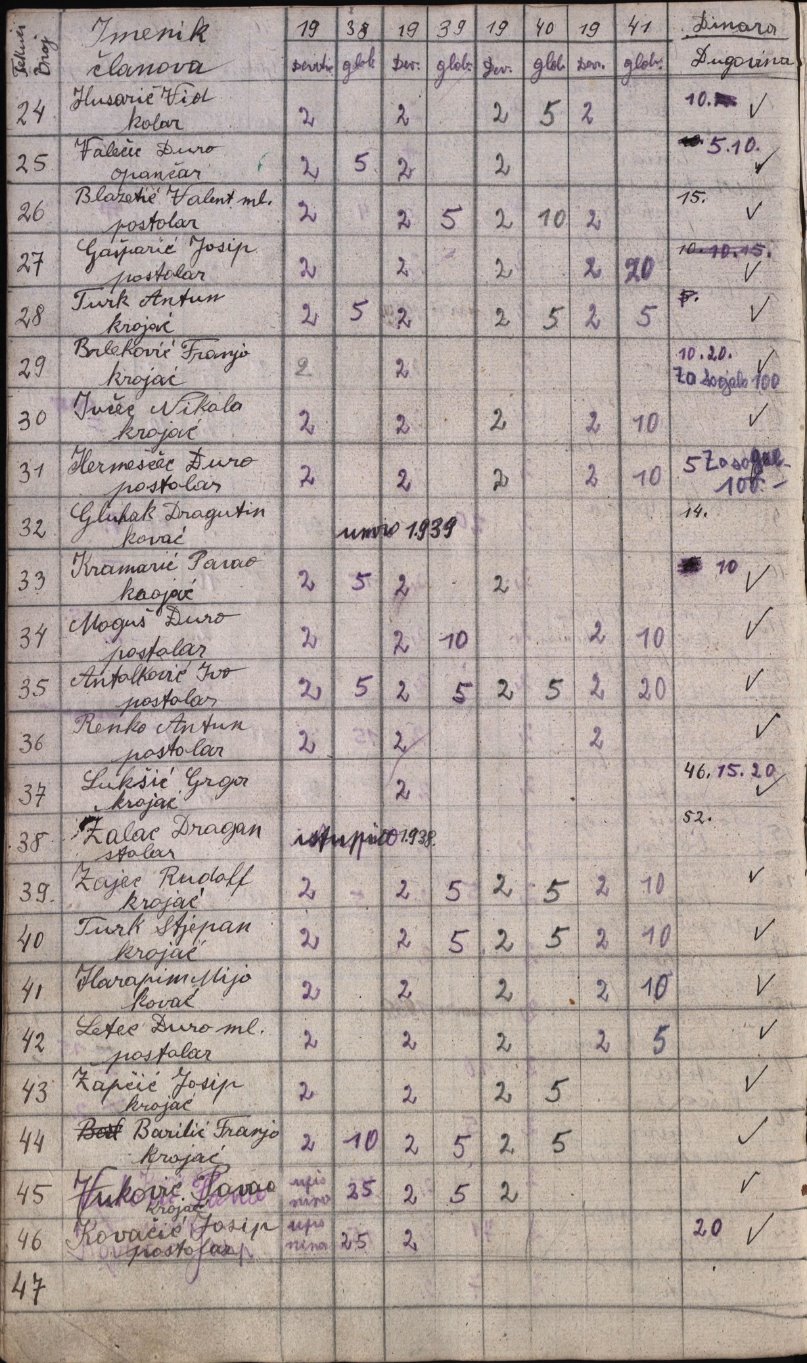 Tekući Broj Imenik članova 19 38 19 39 19 40 19 41 Dinara
glob. Dev. glob. Dev. glob. Dev. glob. Dugovina
24 Husarić Vid 2 2 2 5 2 10. ✓
kolar
25 Valečić Đuro 2 5 2 2 5.10. ✓
opančar
26 Blažetić Valent ml. 2 2 5 2 10 2 15. ✓
postolar
27 Gašparić Josip 2 2 2 2 20 10. 10. 15. ✓
postolar
28 Turk Antun 2 5 2 2 5 2 5 5. ✓
krojač
29 Brleković Franjo 2 2 10. 20. ✓
krojač Za 100
30 Ivšec Nikola 2 2 2 2 10 ✓
krojač
31 Hermeščec Đuro 2 2 2 2 10 5 Za
postolar 100.-
32 Gluhak Dragutin umro 1939 14.
kovač
33 Kramarić Pavao 2 5 2 2 10 ✓
krojač
34 Moguš Đuro 2 2 10 2 10 ✓
postolar
35 Antolković Ivo 2 5 2 5 2 5 2 20 ✓
postolar
36 Renko Antun 2 2 2 ✓
postolar
37 Lukšić Grgo 2 46. 15. 20 ✓
krojač
38 Zalac Dragan istupio 1938. 52.
stolar
39. Zajec Rudolf 2 2 5 2 5 2 10 ✓
krojač
40 Turk Stjepan 2 2 5 2 5 2 10 ✓
krojač
41 Harapim Mijo 2 2 2 2 10 ✓
kovač
42 Letec Đuro ml. 2 2 2 2 5 ✓
postolar
43 Zapčić Josip 2 2 2 5 ✓
krojač
44 Barilić Franjo 2 10 2 5 2 5 ✓
krojač
45 Vuković Pavao upisnina 25 2 5 2 ✓
krojač
46 Kovačić Josip upisnina 25 2 20 ✓
postolar
47